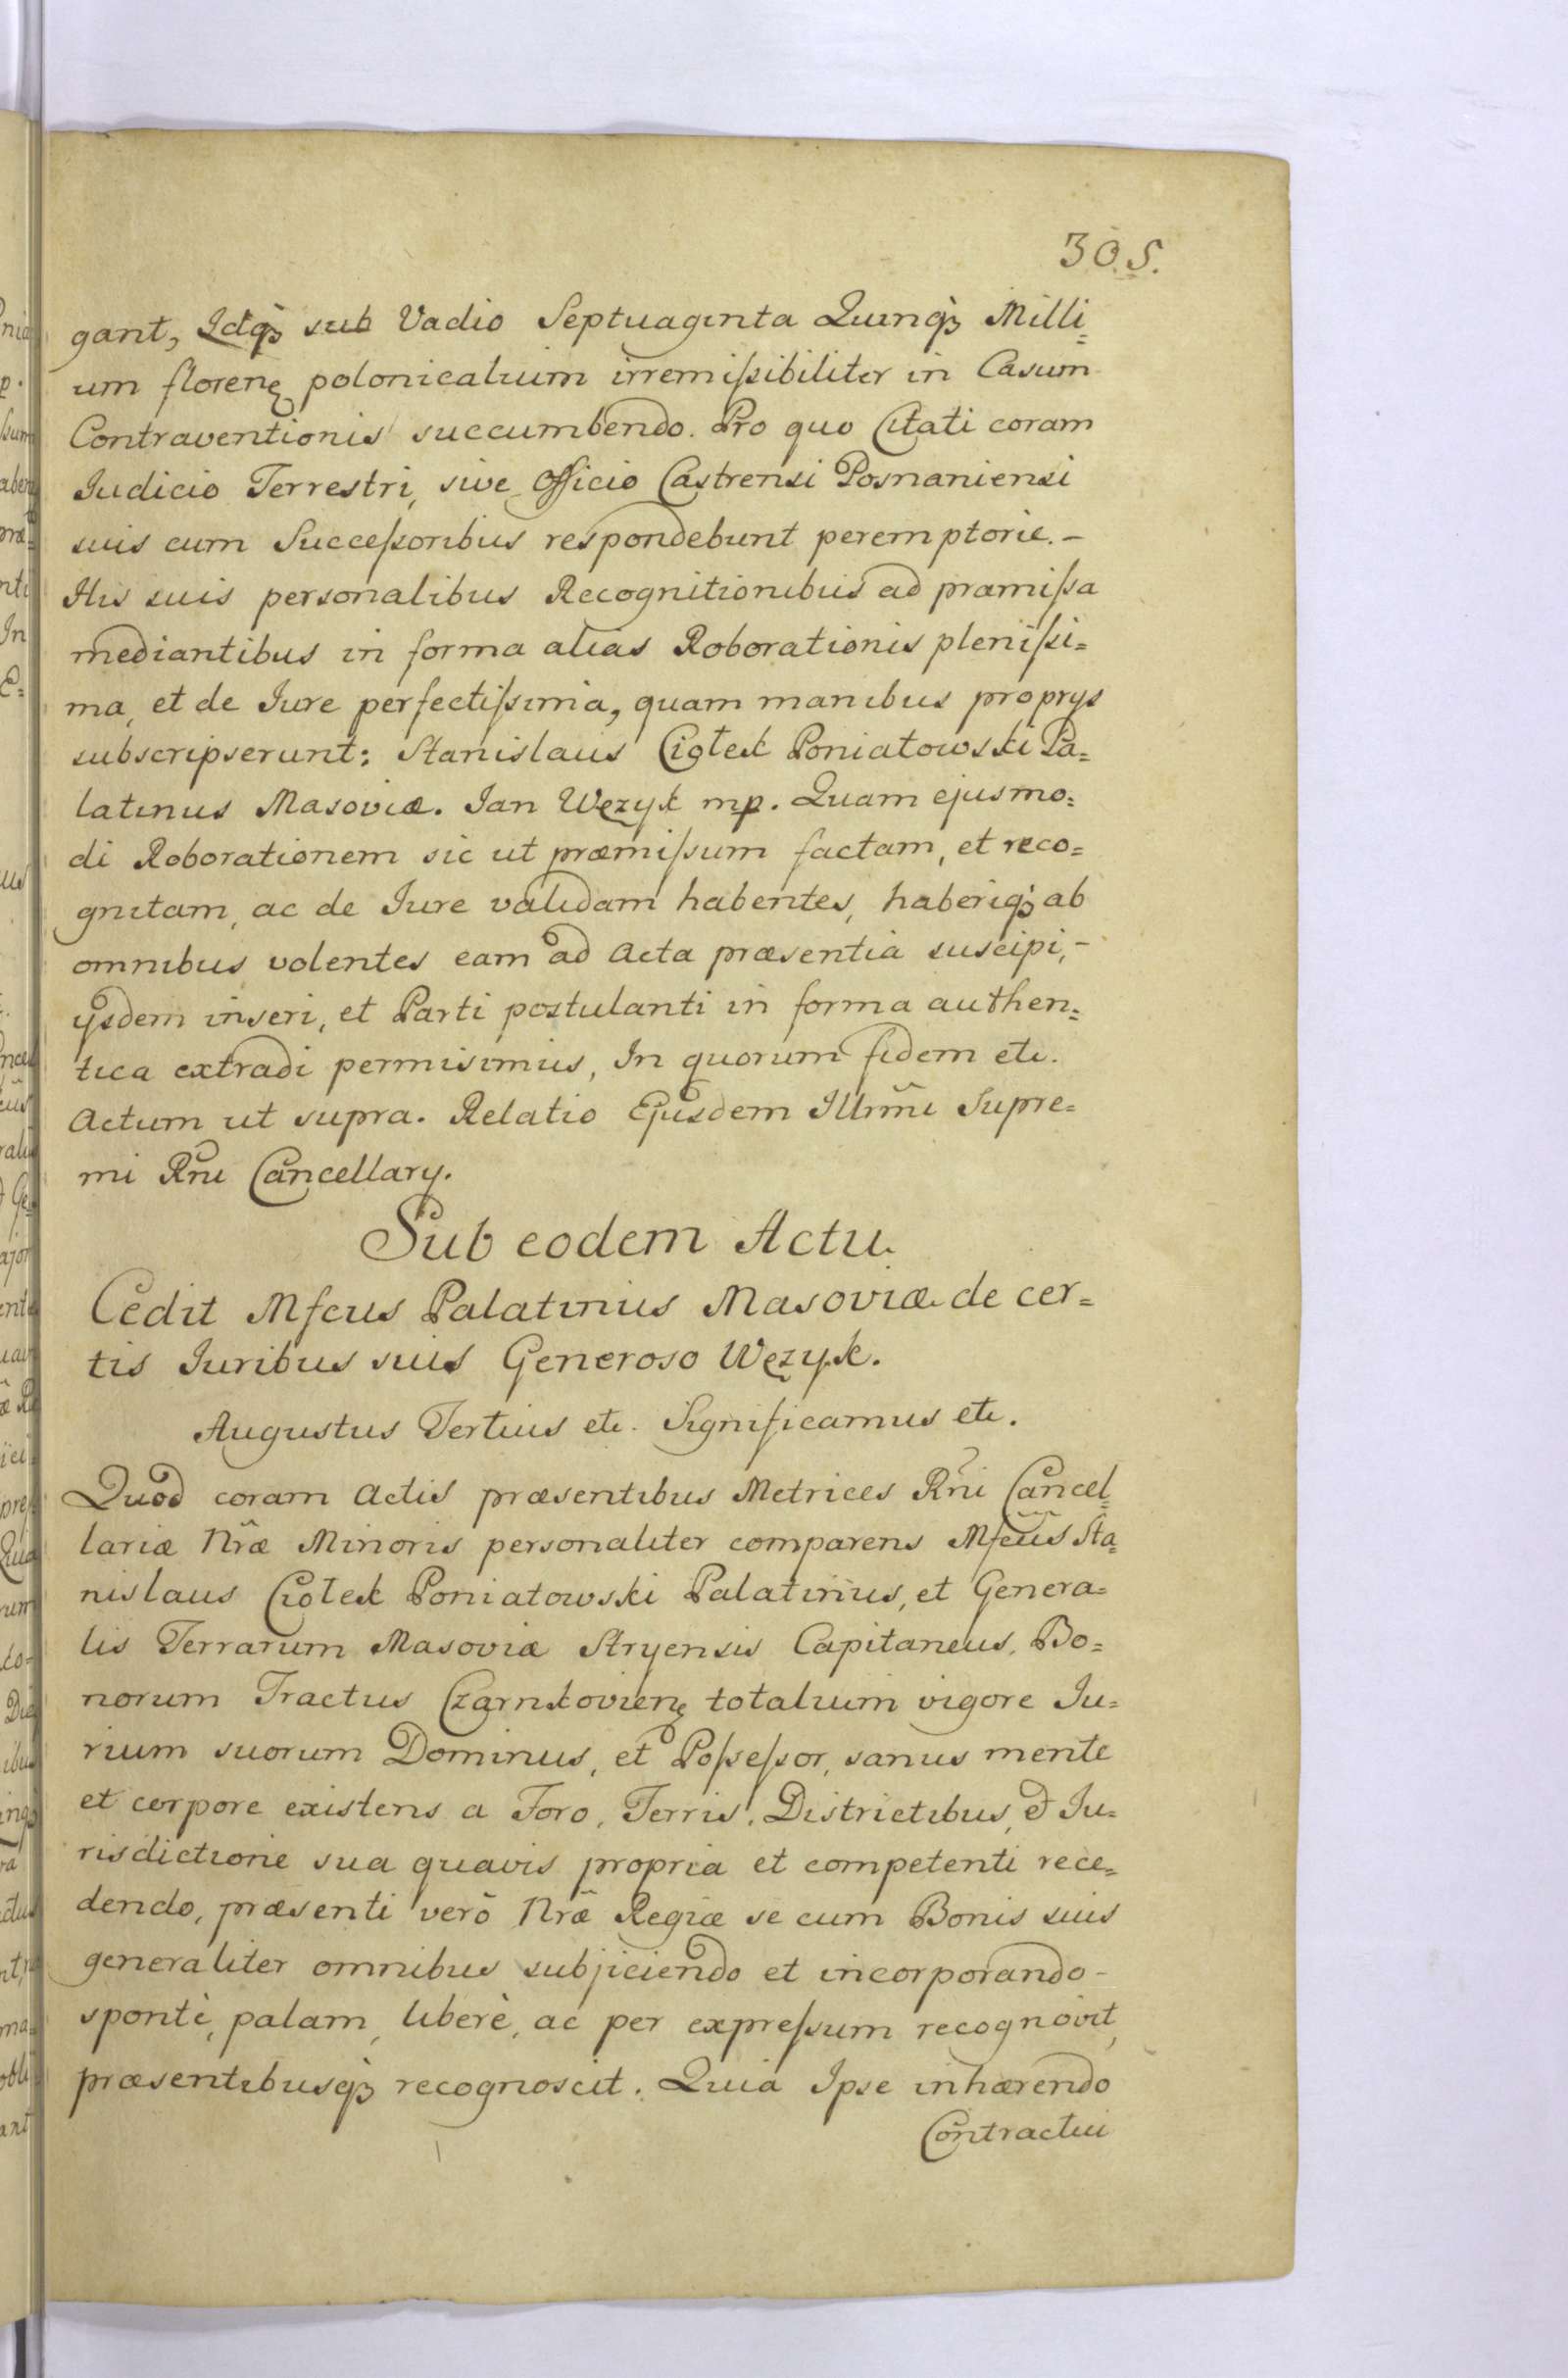 305.
gant, Idq́ꝫ sub Vadio Septuaginta Quinq́ꝫ Milli=
um florenę polonicalium irremiſsibiliter in Casum
Contraventionis succumbendo. Pro quo Citati coram
Iudicio Terrestri, sive Officio Castrensi Posnaniensi
suis cum Succeſsoribus respondebunt peremptorie.-
His suis personalibus Recognitionibus ad præmiſsa
mediantibus in forma alias Roborationis pleniſsi=
ma, et de Iure perfectiſsima, quam manibus proprys
subscripserunt: Stanislaus Ciołek Poniatowski Pa=
latinus Masoviæ. Ian Węzyk mp. Quam ejusmo=
di Roborationem sic ut præmiſsum factam, et reco=
gnitam, ac de Iure validam habentes, haberiq́ꝫ ab
omnibus volentes eam ad Acta præsentia suscipi,-
ysdem inseri, et Parti postulanti in forma authen=
tica extradi permisimus, In quorum fidem etc.
Actum ut supra. Relatio Ejusdem Illrm̃i Supre=
mi Rñi Cancellary.
Sub eodem Actu.
Cedit Mfcus Palatinus Masoviæ de cer=
tis Iuribus suis Generoso Węzyk.
Augustus Tertius etc. Significamus etc.
Quod coram Actis præsentibus Metrices Rñi Cancel=
lariæ Nr̃æ Minoris personaliter comparens Mfcũs Sta=
nislaus Ciołek Poniatowski Palatinus, et Genera=
lis Terrarum Masoviæ Stryensis Capitaneus, Bo=
norum Tractus Czarnkovienę totalium vigore Iu=
rium suorum Dominus, et Poſseſsor, sanus mente
et corpore existens a Foro, Terris, Districtibus, & Iu=
risdictione sua quavis propria et competenti rece=
dendo, præsenti verò Nr̃æ Regiæ se cum Bonis suis
generaliter omnibus subjiciendo et incorporando-
spontè, palam, liberè, ac per expreſsum recognovit,
præsentibusq́ꝫ recognoscit. Quia Ipse inhærendo
Contractui